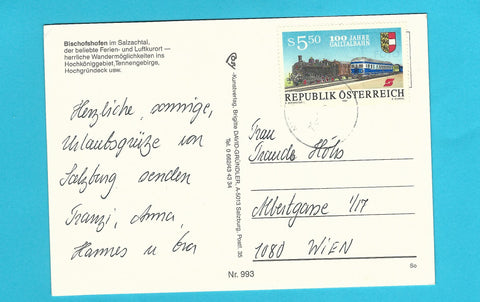 Bischofshofen im Salzachtal,
der beliebte Ferien- und Luftkurort —
herrliche Wandermöglichkeiten ins
Hochköniggebiet, Tennengebirge,
Hochgründeck usw.
Herzliche, sonnige,
Urlaubsgrüße von
Salzburg senden
Franzi, Anna,
Hannes u
Cosy
-Kunstverlag, Brigitte DAVID-GRÜNDLER, A-5013 Salzburg, Postf. 35
Tel. 0 662/43 42 34
Nr. 993
S 5,50
100 JAHRE
GAILTALBAHN
REPUBLIK ÖSTERREICH
Frau
Traudi
Albertgasse 1/17
1080 WIEN